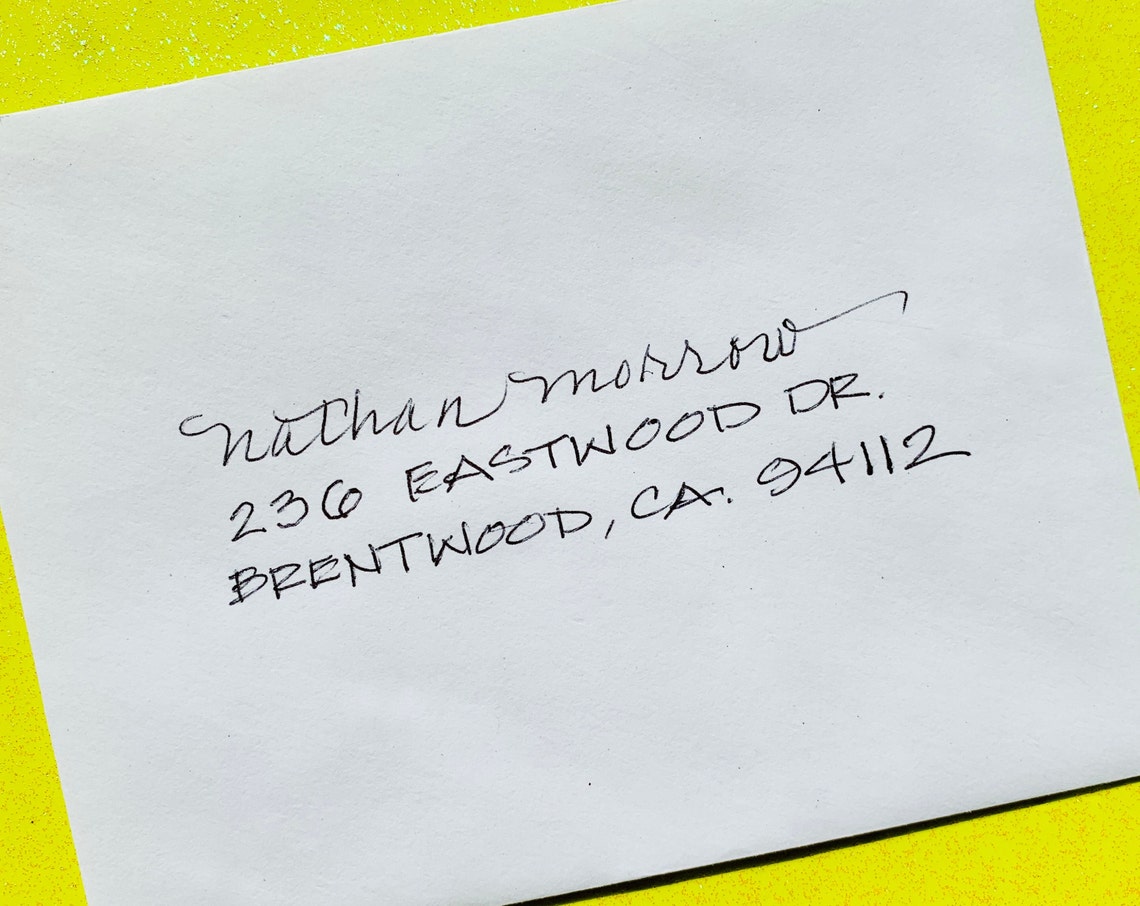 Nathan Morrow
236 EASTWOOD DR.
BRENTWOOD, CA. 94112